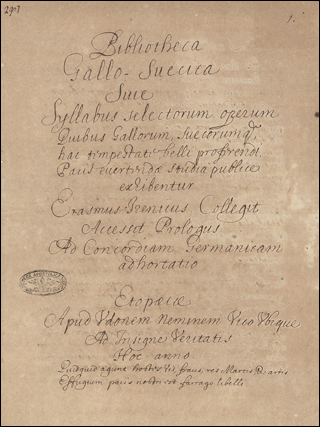 297
1.
Bibliotheca
Gallo-Suecica
Sive
Syllabus selectorum operum
Quibus Gallorum Suecorumq,
hac tempestati belli proferendi
Pacis evertendæ studia publice
exhibentur
Erasmus Irenicus Collegit
Accessit Prologus
Ad Concordiam Germanicam
adhortatio
Etopæciæ
Apud Vdonem Neminem Vico Vbique
Ad Insigne Veritatis
Hoc anno
Quidquid agunt hostes
Effugium pacis nostri est farrago libelli